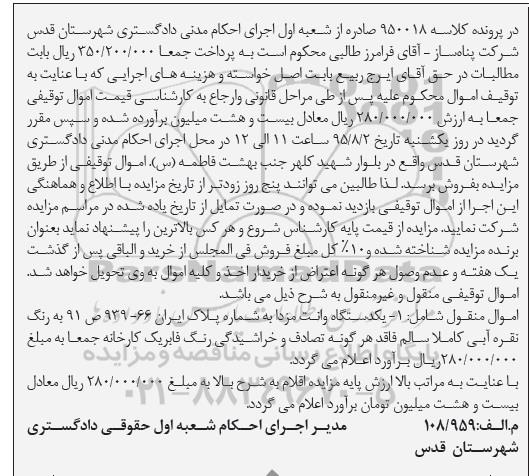 در پرونده کلاسه ۹۵۰۰۱۸ صادره از شعبه اول اجرای احکام مدنی دادگستری شهرستان قدس
شرکت پناه‌ساز - آقای فرامرز طالبی محکوم است به پرداخت جمعا ۳۵۰/۲۰۰/۰۰۰ ریال بابت
مطالبات در حق آقای ایرج ربیع بابت اصل خواسته و هزینه های اجرایی که با عنایت به
توقیف اموال محکوم علیه پس از طی مراحل قانونی وارجاع به کارشناسی قیمت اموال توقیفی
جمعا به ارزش ۲۸۰/۰۰۰/۰۰۰ ریال معادل بیست و هشت میلیون برآورده شده و سپس مقرر
گردید در روز یکشنبه تاریخ ۹۵/۸/۲ ساعت ۱۱ الی ۱۲ در محل اجرای احکام مدنی دادگستری
شهرستان قدس واقع در بلوار شهید کلهر جنب بهشت فاطمه (س). اموال توقیفی از طریق
مزایده بفروش برسد. لذا طالبین می توانند پنج روز زودتر از تاریخ مزایده با اطلاع و هماهنگی
این اجرا از اموال توقیفی بازدید نموده و در صورت تمایل از تاریخ یاده شده در مراسم مزایده
شرکت نمایید. مزایده از قیمت پایه کارشناس شروع و هر کس بالاترین را پیشنهاد نماید بعنوان
برنده مزایده شناخته شده و۱۰٪ کل مبلغ فروش فی المجلس از خرید و الباقی پس از گذشت
یک هفته و عدم وصول هر گونه اعتراض از خریدار اخذ و کلیه اموال به وی تحویل خواهد شد.
اموال توقیفی منقول و غیرمنقول به شرح ذیل می باشد.
اموال منقول شامل: ۱- یکدستگاه وانت مزدا به شماره پلاک ایران ۶۶- ۹۳۹ ص ۹۱ به رنگ
نقره آبی کاملا سالم فاقد هر گونه تصادف و خراشیدگی رنگ فابریک کارخانه جمعا به مبلغ
۲۸۰/۰۰۰/۰۰۰ریال برآورد اعلام می گردد.
با عنایت به مراتب بالا ارزش پایه مزایده اقلام به شرح بالا به مبلغ ۲۸۰/۰۰۰/۰۰۰ ریال معادل
بیست و هشت میلیون تومان برآورد اعلام می گردد.
م.الف:۱۰۸/۹۵۹ مدیر اجرای احکام شعبه اول حقوقی دادگستری
شهرستان قدس
۰۲۱-۸۸۳۴۹۶۷۰-۵